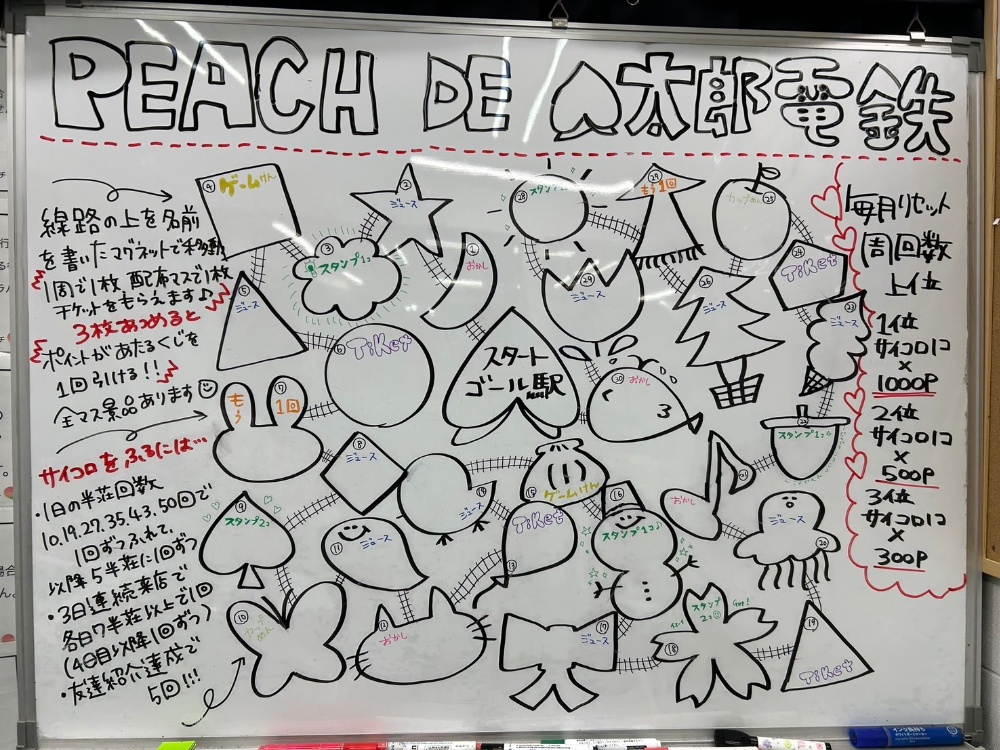 PEACH DE ♤太郎電鉄
線路の上を名前
を書いたマグネットで移動
1周で1枚 配席マスで1枚
チケットをもらえます♪
3枚あつめると
ポイントがあたるくじを
1回引ける!!
全マス景品あります☺
サイコロをふるには…
・1日の半荘回数
10.19.27.35.43.50回で
1回ずつふれて、
以降5半荘に1回ずつ
・3日連続来店で
各日7半荘以上で1回
(4日目以降1回ずつ)
・友達紹介達成で
5回!!!
スタート
ゴール駅
① おかし
② ジュース
③ スタンプ1コ
④ ゲームけん
⑤ ジュース
⑥ TiKet
⑦ もう1回
⑧ ジュース
⑨ スタンプ2コ
⑩ カップめん
⑪ ジュース
⑫ おかし
⑬ TiKet
⑭ ジュース
⑮ ゲームけん
⑯ スタンプ1コ♪
⑰ ジュース
⑱ スタンプ2コ☺ Get!
⑲ TiKet
⑳ ジュース
㉑ おかし
㉒ スタンプ1コ
㉓ ジュース
㉔ TiKet
㉕ カップめん
㉖ ジュース
㉗ もう1回
㉘ スタンプ
㉙ ジュース
㉚ おかし
毎月リセット
周回数
上位
1位
サイコロ1コ
×
1000P
2位
サイコロ1コ
×
500P
3位
サイコロ1コ
×
300P